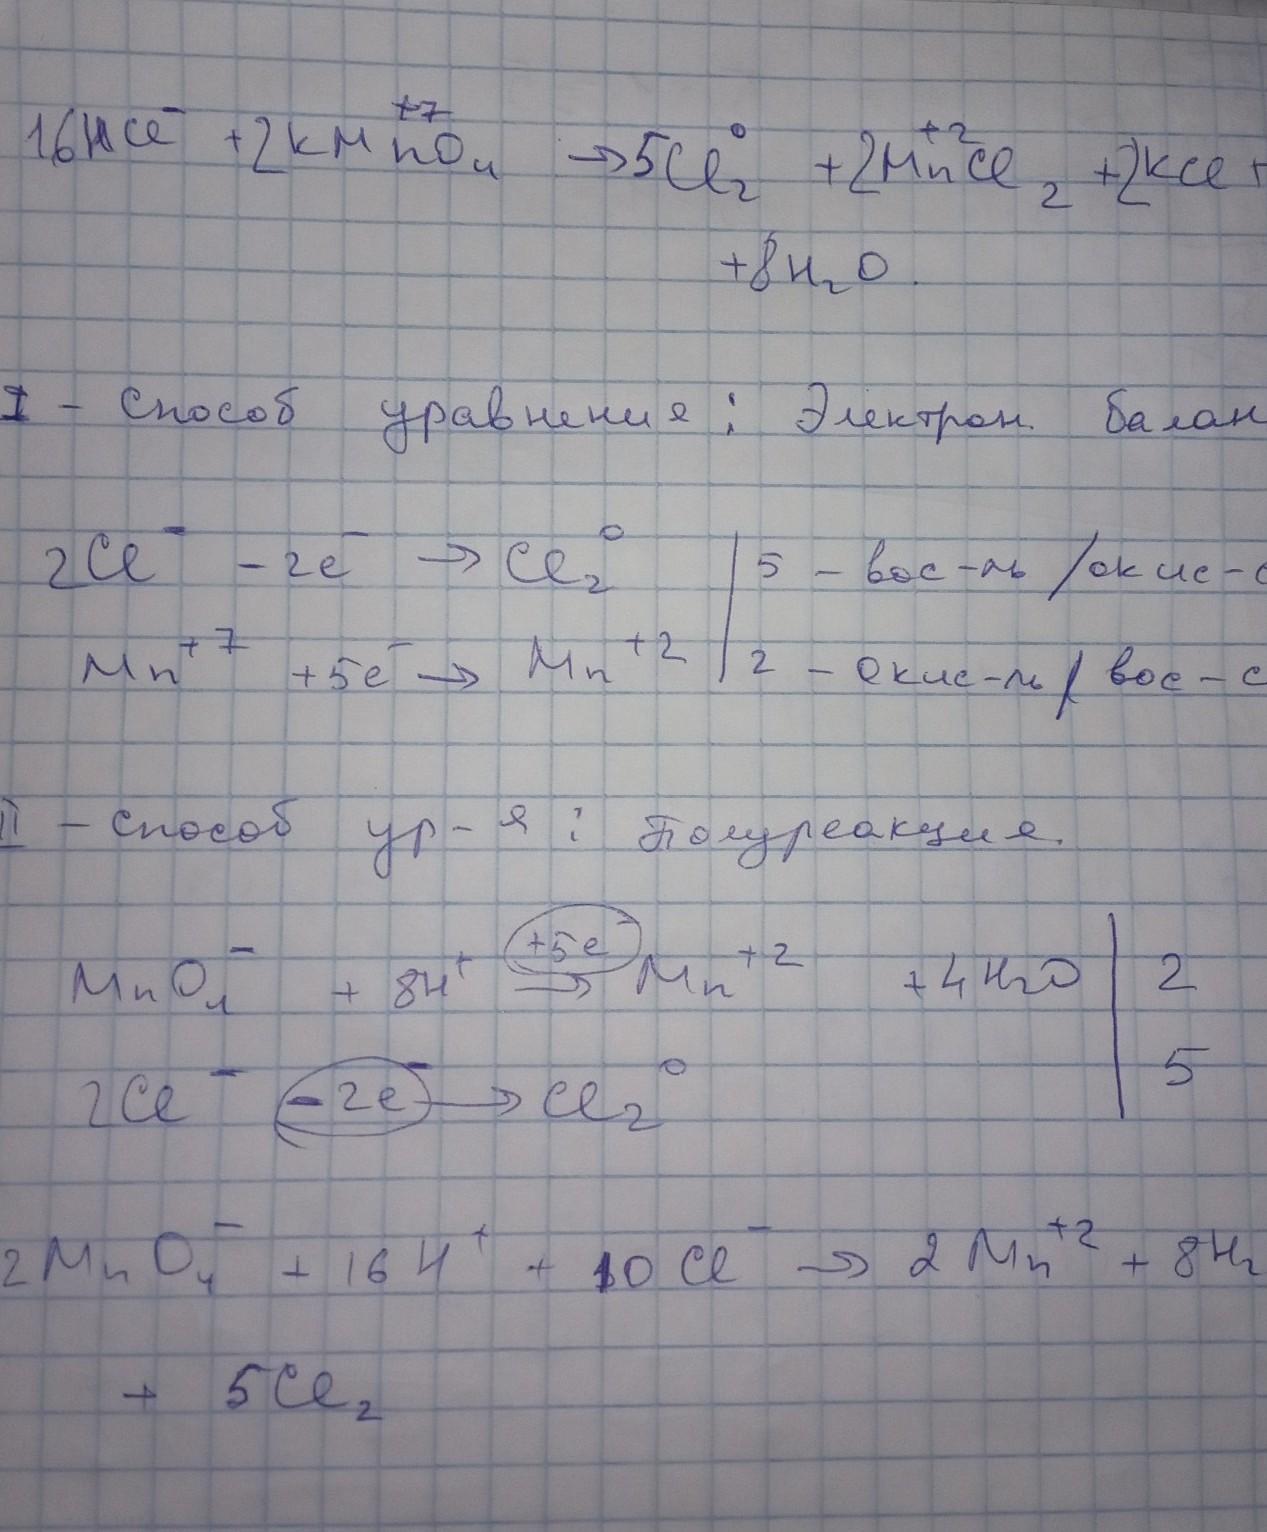 16HCl⁻ + 2KMn⁺⁷O₄ → 5Cl₂⁰ + 2Mn⁺²Cl₂ + 2KCl +
+ 8H₂O.
I - Способ уравнения: Электрон. балан
2Cl⁻ - 2e⁻ → Cl₂⁰ | 5 - вос-ль / окис-с
Mn⁺⁷ + 5e⁻ → Mn⁺² | 2 - окис-ль / вос-с
II - Способ ур-я: Полуреакция.
MnO₄⁻ + 8H⁺ +5e⁻ → Mn⁺² + 4H₂O | 2
2Cl⁻ - 2e⁻ → Cl₂⁰ | 5
2MnO₄⁻ + 16H⁺ + 10Cl⁻ → 2Mn⁺² + 8H₂
+ 5Cl₂